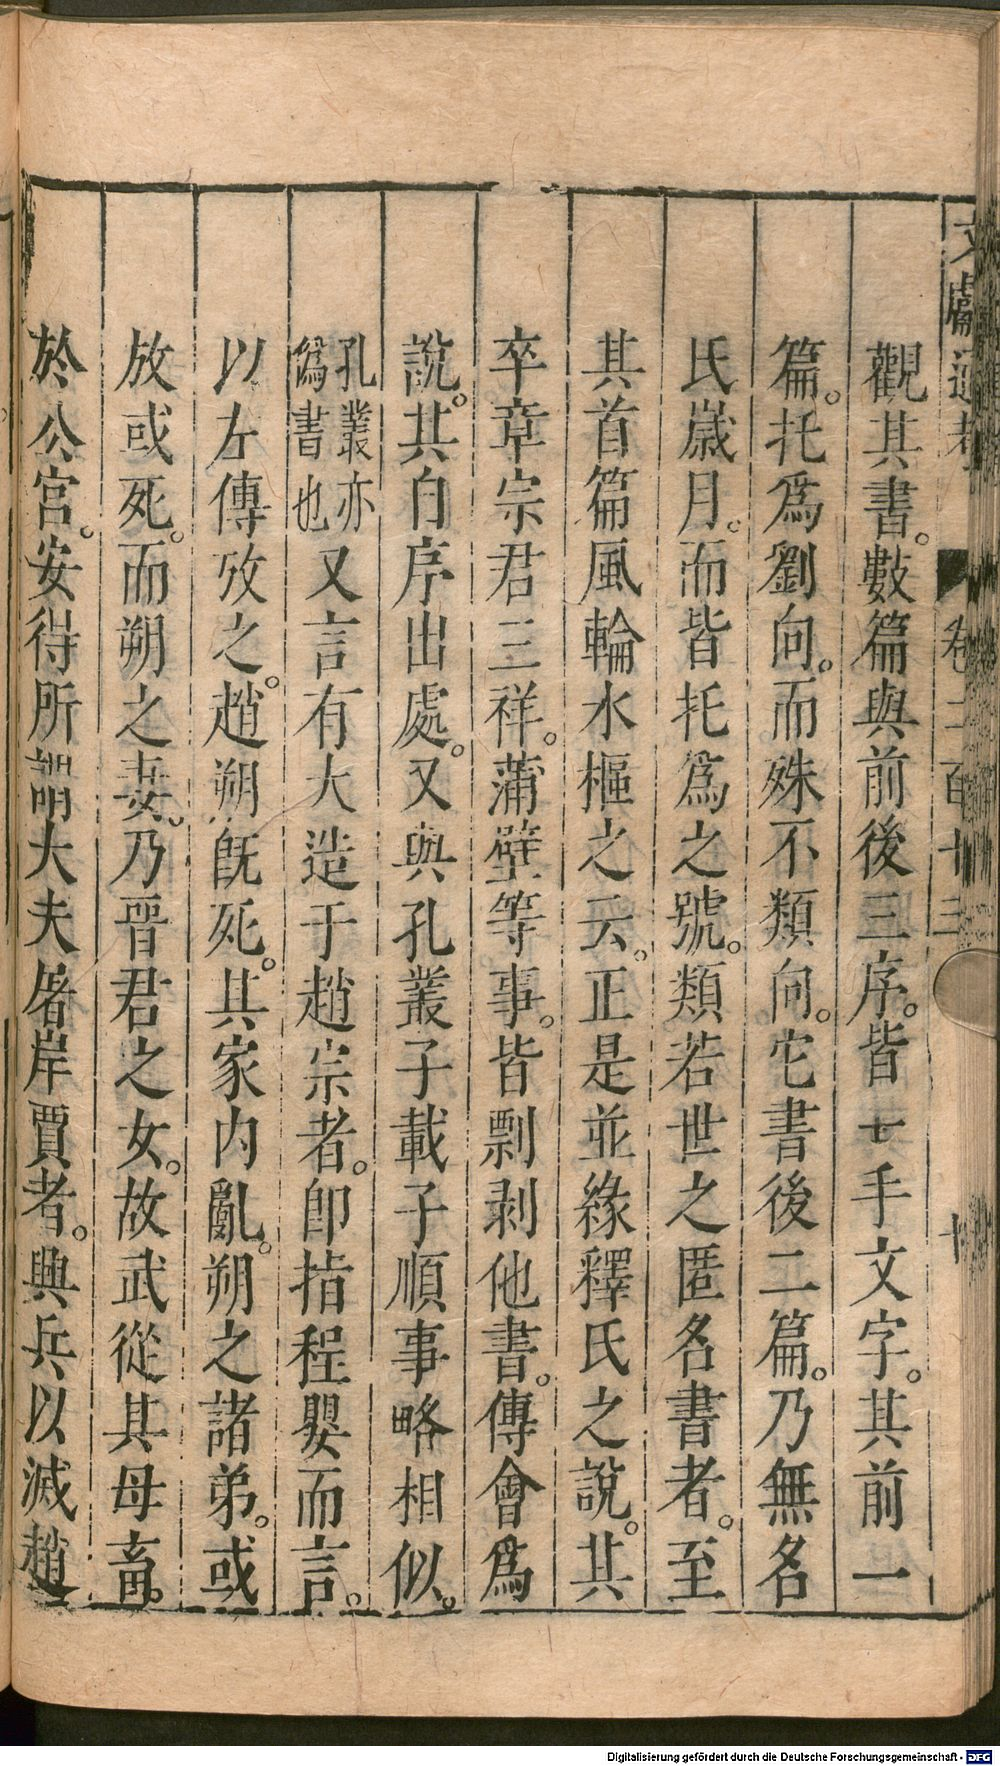 文獻通考 卷二百十三 十
觀其書。數篇與前後三序。皆一手文字。其前一
篇。托爲劉向。而殊不類向。它書後二篇。乃無名
氏歲月。而皆托爲之號。類若世之匿名書者。至
其首篇風輪水樞之云。正是並緣釋氏之說。其
卒章宗君三祥。蒲壁等事。皆剽剥他書。傳會爲
說。其自序出處。又與孔叢子載子順事略相似。
孔叢亦僞書也又言有大造于趙宗者。卽指程嬰而言。
以左傳攷之。趙朔旣死。其家內亂。朔之諸弟。或
放或死。而朔之妻。乃晉君之女。故武從其母畜。
於公宮。安得所謂大夫屠岸賈者。興兵以滅趙
Digitalisierung gefördert durch die Deutsche Forschungsgemeinschaft - DFG